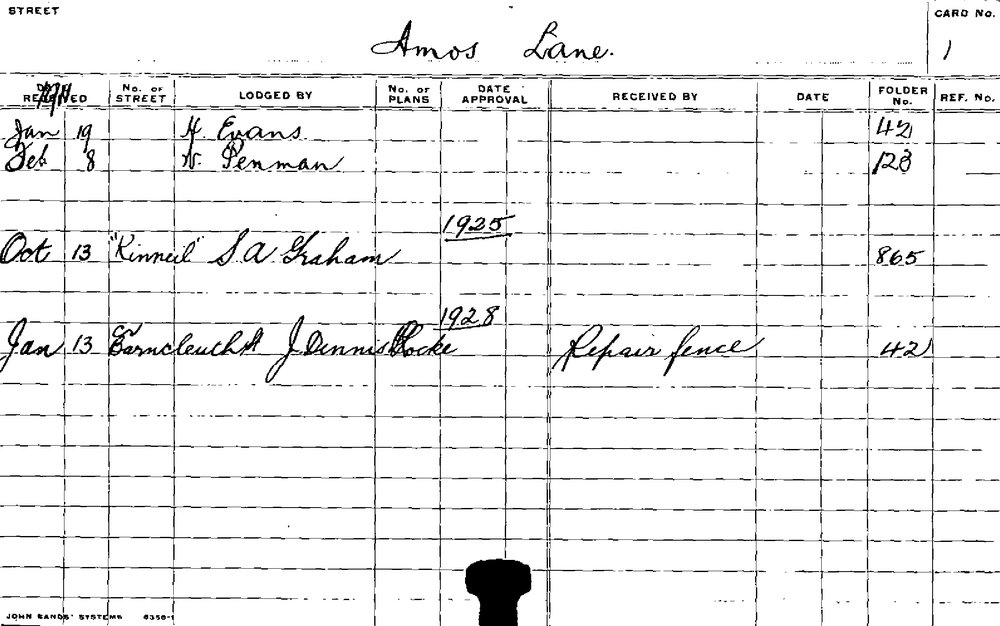 STREET
CARD No.
Amos Lane.
1
RECEIVED No. OF STREET LODGED BY No. OF PLANS DATE APPROVAL RECEIVED BY DATE FOLDER No. REF. No.
Jan 19 H. Evans 42
Feb 8 W. Penman 123
1925
Oct 13 "Kinneil" S A Graham 865
1928
Jan 13 Cr Barncleuth J Dennis Repair fence 42
JOHN SANDS' SYSTEMS 6350-1